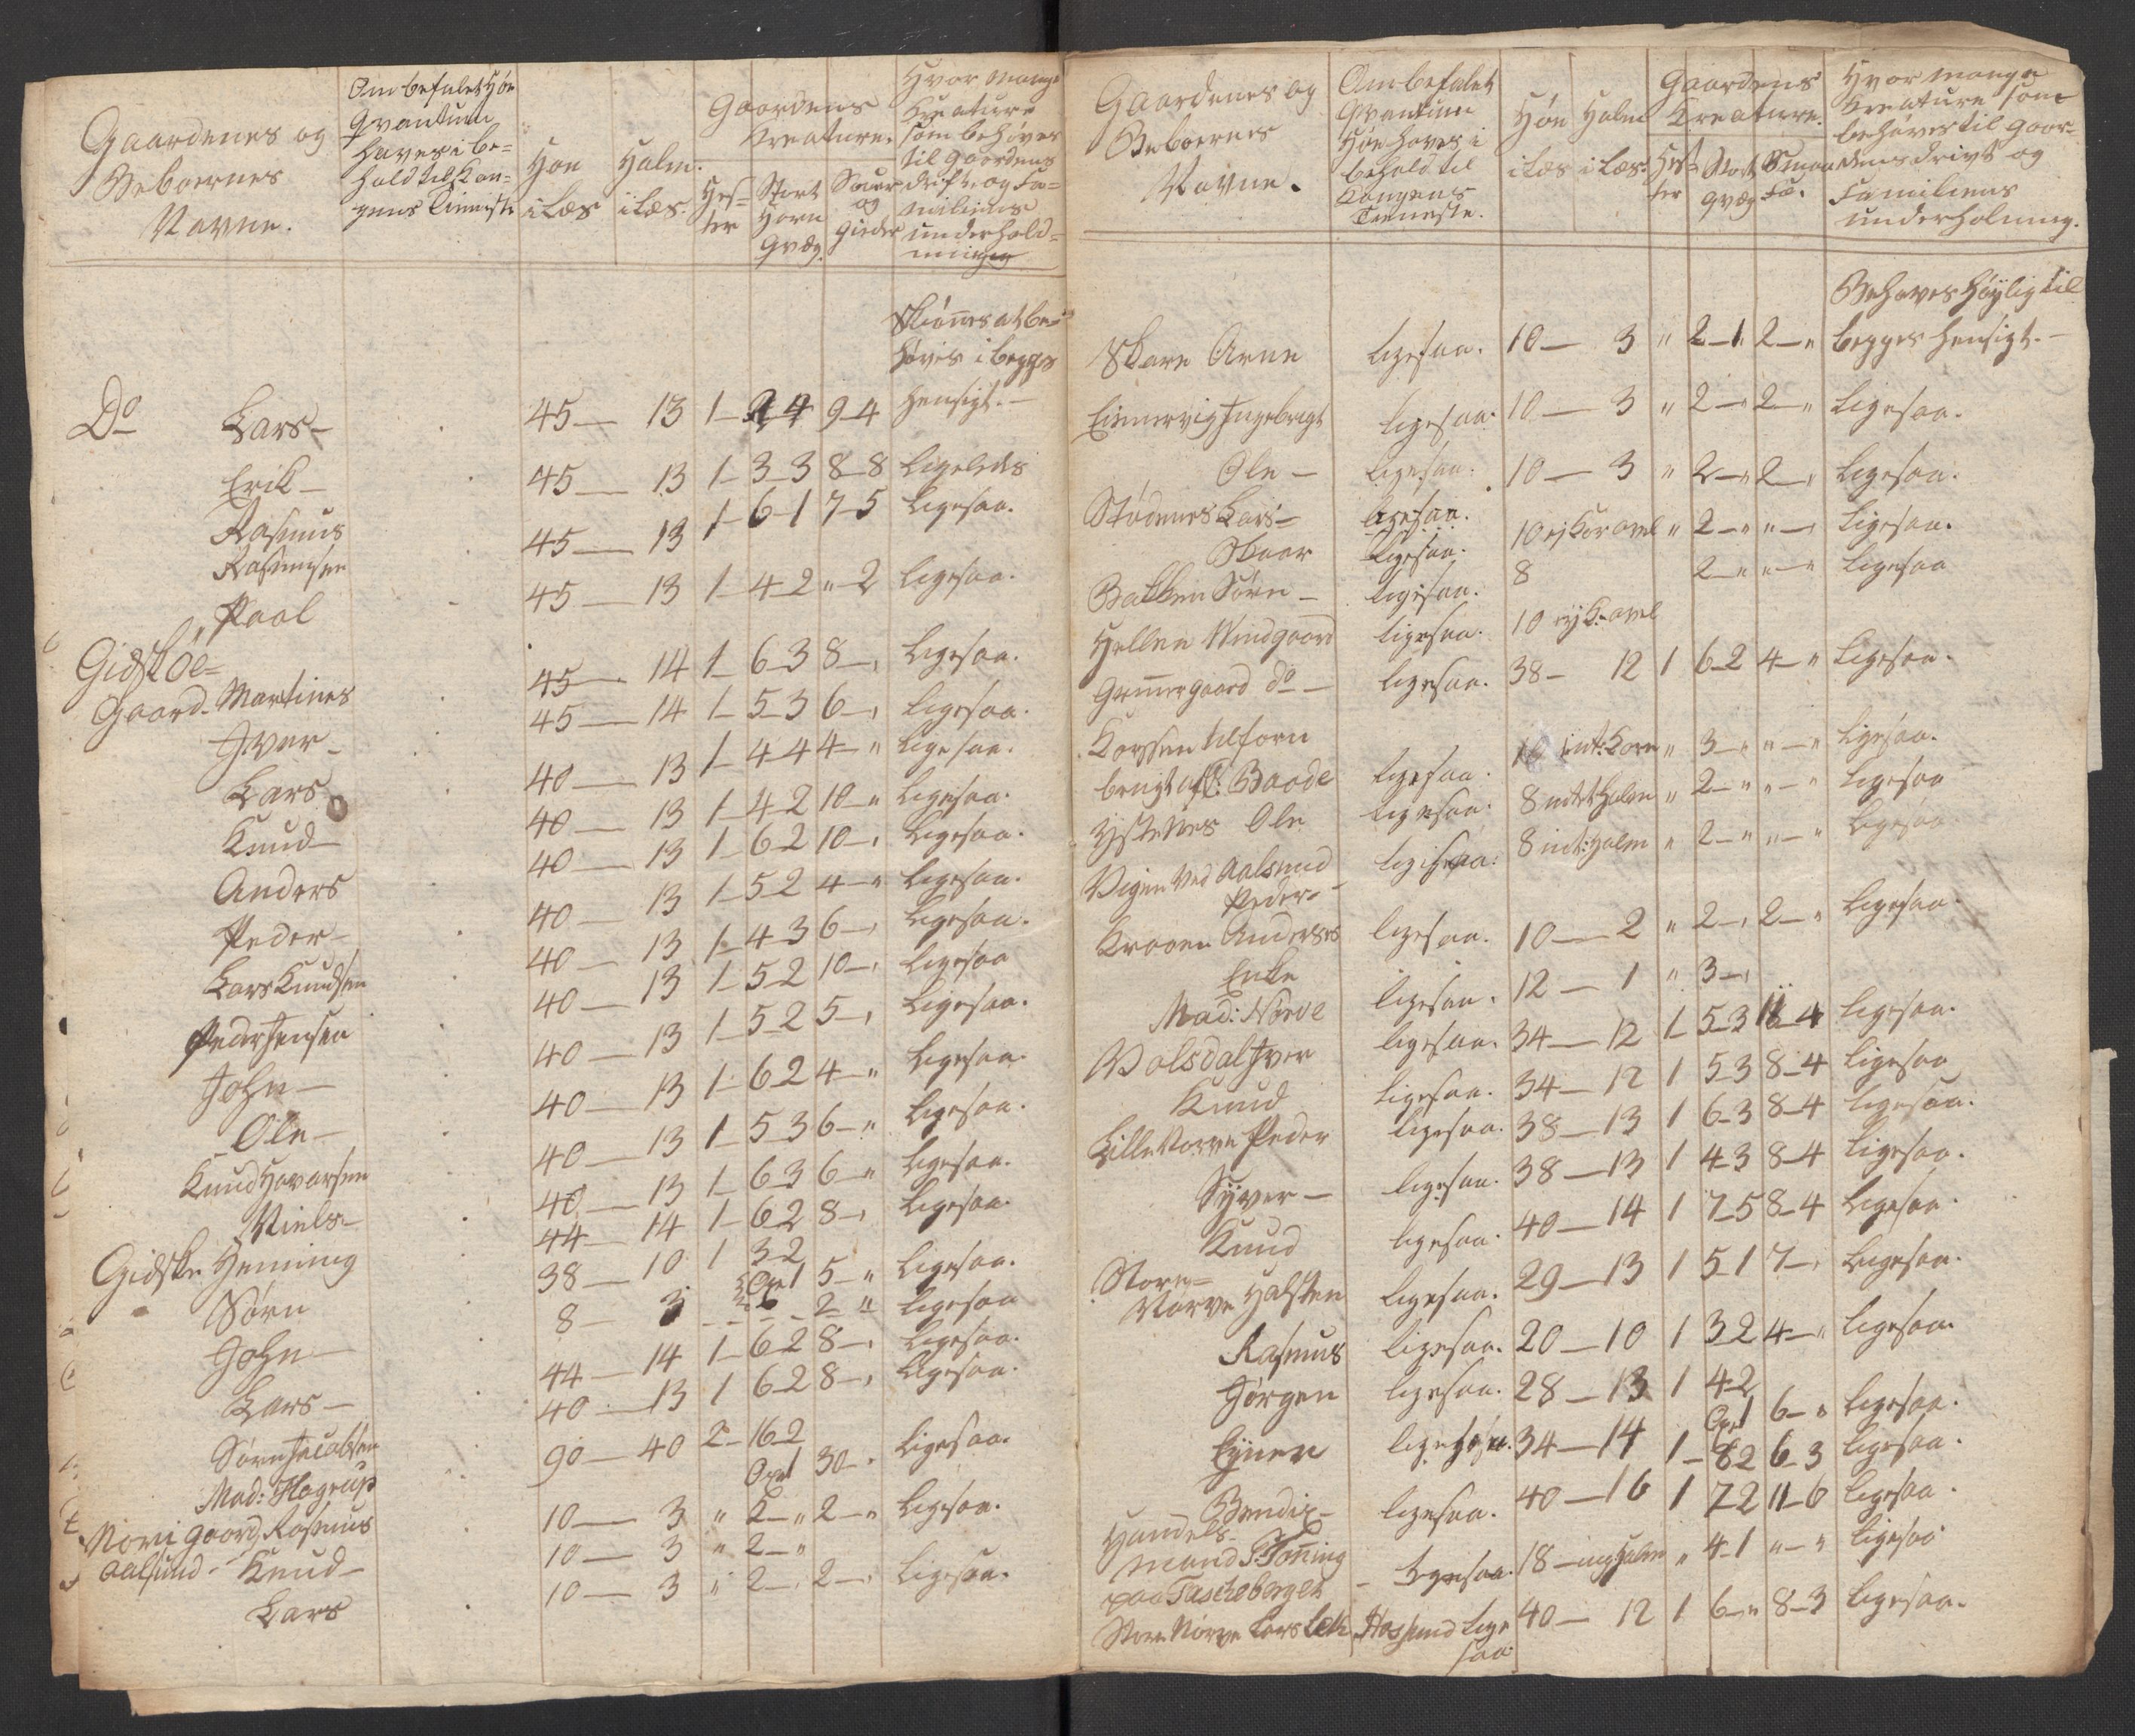 Gaardenes og
Beboernes
Navne.
Om befalet Høe
Qvantum
haves i be=
hold til Kon=
gens Tienneste
Høe
i Læs
Halm.
i Læs.
Gaardens
Kreature.
Hes=
ter
Stort
Horn
Qvæg.
Sauer
og
Gieder
Hvor mange
Kreature
som behøves
til Gaardens
drift og Fa=
miliens
underhold=
ning
Skiønnes at be=
høves i begge
Do Lars – 45 — 13 1 – 2 4 9–4 Hensigt. –
Erik – 45 — 13 1 – 3–3 8–8 Ligeledes
Rasmus
Rasmusen 45 — 13 1 – 6–1 7–5 Ligesaa.
Paal 45 — 13 1 – 4–2 " – 2 Ligesaa.
Gidskøe=
Gaard. Martines 45 — 14 1 – 6–3 8 – " Ligesaa.
Iver – 45 — 14 1 – 5–3 6 – " Ligesaa.
Lars 40 — 13 1 – 4–4 4 – " Ligesaa.
Knud – 40 — 13 1 – 4–2 10 – " Ligesaa.
Anders 40 — 13 1 – 6–2 10 – " Ligesaa.
Peder – 40 — 13 1 – 5–2 4 – " Ligesaa.
Lars Knudsen 40 — 13 1 – 4–3 6 – " Ligesaa.
Peder Jensen 40 — 13 1 – 5–2 10 – " Ligesaa
John – 40 — 13 1 – 5–2 5 – " Ligesaa.
Ole – 40 — 13 1 – 6–2 4 – " Ligesaa.
Knud Havarsen 40 — 13 1 – 5–3 6 – " Ligesaa.
Niels – 40 — 13 1 – 6–3 6 – " Ligesaa.
Gidske Henning 44 — 14 1 – 6–2 8 – " Ligesaa.
Sørn 38 — 10 1 3–2 Oxe 1 5 – " Ligesaa.
John – 8 — 3 2 " Ligesaa
Lars – 44 — 14 1 – 6–2 8 – " Ligesaa.
Sørn Jacobsen 40 — 13 1 6–2 8 – " Ligesaa.
Mad: Hagerup 90 — 40 2 – 16–2 Oxe 1 30 – " Ligesaa.
Norigaard, Rasmus 10 — 3 " 2 – " 2 – " Ligesaa.
Aalsund – Knud – 10 — 3 " 2 – "
Lars 10 — 3 " 2 – " 2 – " Ligesaa.
Gaardenes og
Beboernes
Navne.
Om befalet
Qvantum
Høe haves i
behold til
Kongens
Tienneste.
Høe
i Læs
Halm
i Læs.
Gaardens
Kreature.
Hes=
ter
Stort
Qvæg
Smaa
Fæ.
Hvor mange
Kreature som
behøves til Gaar=
dens drivt og
Familiens
underholning.
Behøves høylig til
Skare Arne ligesaa. 10 — 3 " 2 – 1 2 – " begges Hensigt. –
Ingebregt ligesaa 10 — 3 " 2 – " 2 – " Ligesaa.
Ole – ligesaa. 10 — 3 " 2 – " 2 – " Ligesaa.
Stødenes Lars – ligesaa. 10 ej Kor avel " 2 – " " – " Ligesaa.
Skaar ligesaa. 8 2 – " " – " Ligesaa
Bakken Sørn – ligesaa. 10 ej K: avel
Hellen Nordgaard ligesaa. 38 – 12 1 6–2 4 – " Ligesaa.
Grimmergaard do – ligesaa.
Korssen tilforn
brugt af L: Baade ligesaa. 10 int: Korn " 3 – " " – " Ligesaa.
Ystenes Ole ligesaa. 8 intet Halm " 2 – " " – " Ligesaa
Vigen ved Aalesund
Peder – ligesaa. 8 int: Halm " 2 – " " – " Ligesaa
Kraaen Anderses
Enke ligesaa. 10 — 2 " 2 – " 2 – " Ligesaa.
Mad: Nørve ligesaa. 12 — 1 " 3 – "
Volsdal Iver ligesaa. 34 — 12 1 5–3 – 4 Ligesaa.
Knud ligesaa. 34 — 12 1 5–3 8–4 Ligesaa
Lille Nørve Peder ligesaa. 38 — 13 1 6–3 8–4 Ligesaa.
Syver – ligesaa. 38 — 13 1 4–3 8–4 Ligesaa.
Knud ligesaa. 40 — 14 1 7–5 8–4 Ligesaa.
Store=
Nørve Halsten ligesaa. 29 — 13 1 5–1 7 – " Ligesaa.
Rasmus ligesaa. 20 — 10 1 3–2 4 – " Ligesaa.
Jørgen ligesaa. 28 — 13 1 4–2 Oxe 1 6 – " Ligesaa.
Eyner ligesaa. 34 — 14 1 – 8–2 6–3 Ligesaa.
Bendix – ligesaa. 40 — 16 1 7–2 11–6 Ligesaa.
Handels=
mand P: Tønning
paa – Ligesaa. 18 – ing Halm " 4–1 " – " Ligesaa
Store Nørve Lars Hossund Lige
saa 40 — 12 1 6 – " 8–3 Ligesaa.